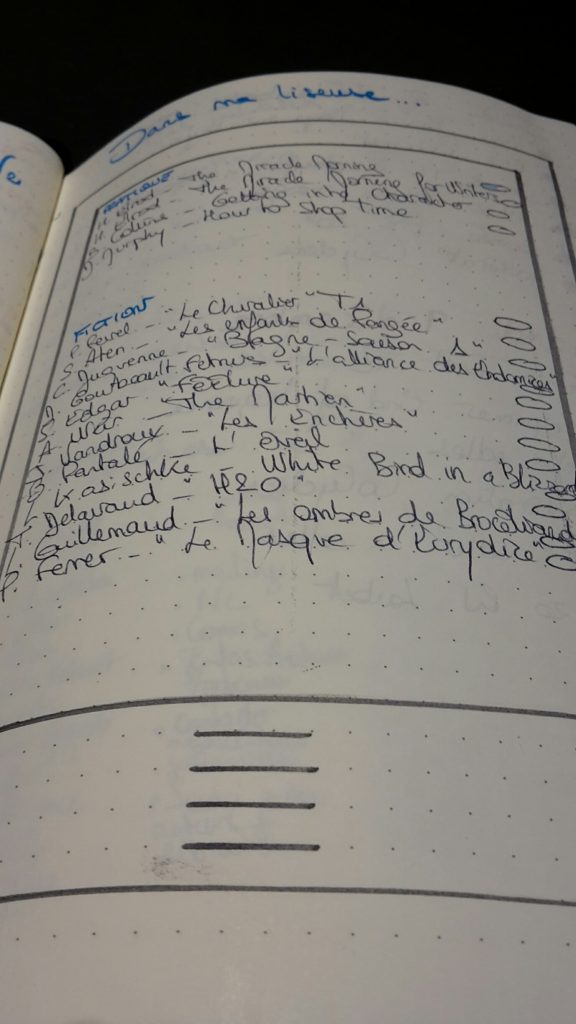 Dans ma liseuse...
PRATIQUE
H. Elrod - The Miracle Morning
H. Elrod - The Miracle Morning for Writers
B. Collins - Getting into Character
D. Murphy - How to Stop Time
FICTION
P. Pevel - "Le Chevalier" T1
S. Aten - "Les enfants de Pangée"
C. Duquenne - "Bagne - saison 1"
D. Goudreault "L'alliance des
S. Edgar "Feeluxe"
A. Weir - "The Martian"
J. Vandroux - "Les Enchères"
- L'Eveil
L. Kasischke - White Bird in a Blizzard
T. Delavaud - "H2O"
Guillemaud - "Les ombres de
P. Ferrer - "Le Masque d'Eurydice"